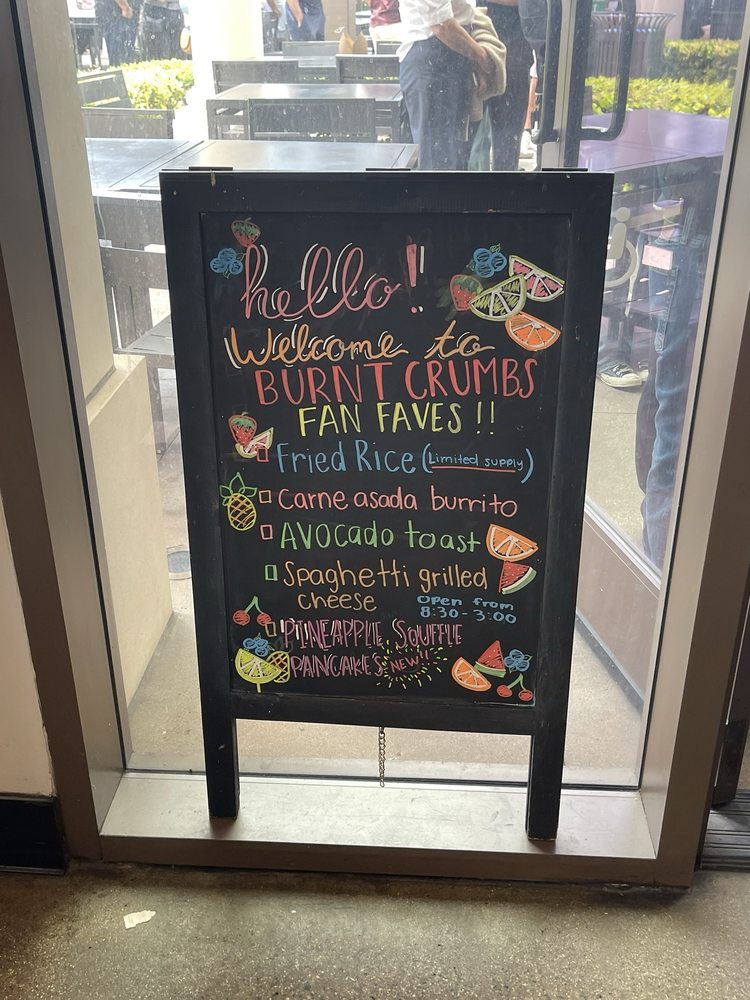 hello!
Welcome to
BURNT CRUMBS
FAN FAVES !!
Fried Rice (Limited supply)
carne asada burrito
AVOCADO toast
Spaghetti grilled
cheese
open from
8:30-3:00
PINEAPPLE SOUFFLE
PANCAKES NEW!!